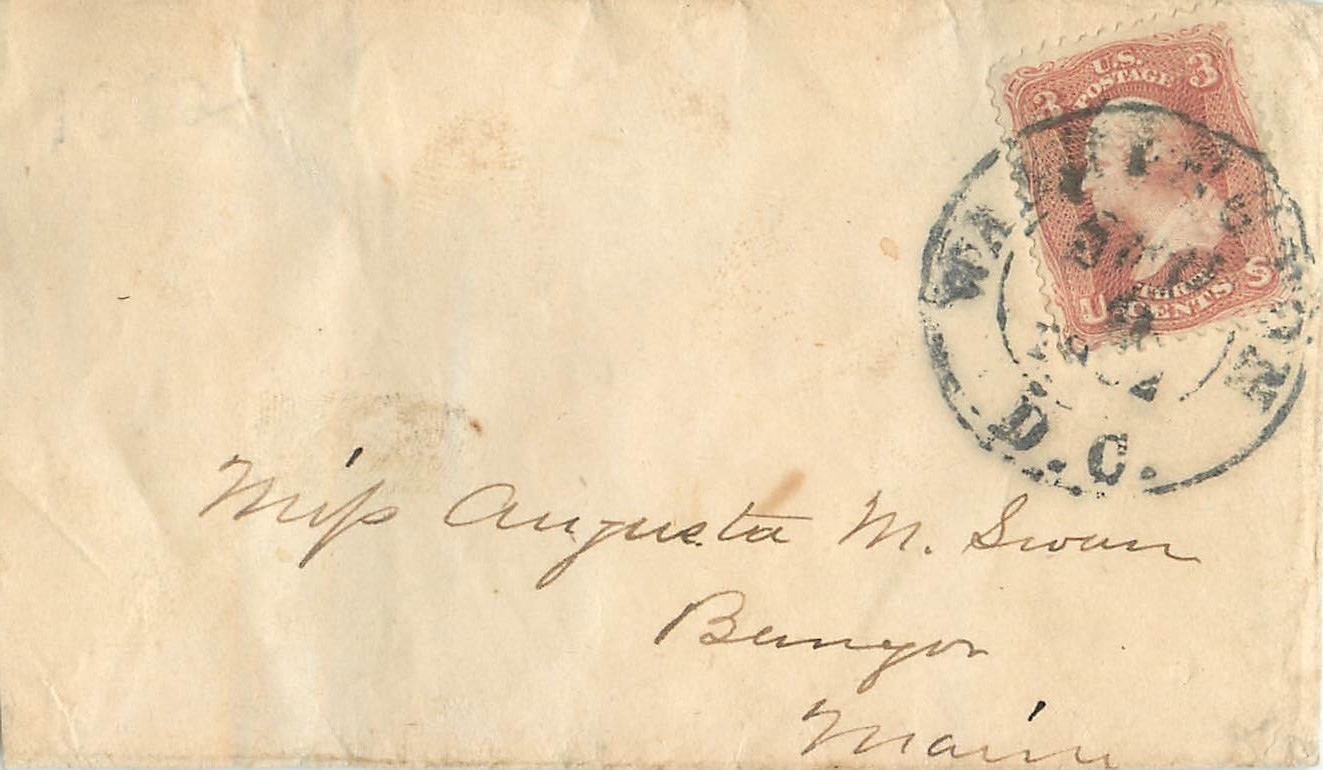 U.S.
POSTAGE
3 3
WASHINGTON
D.C.
U S
CENTS
Miss Augusta M. Swan
Bangor
Maine